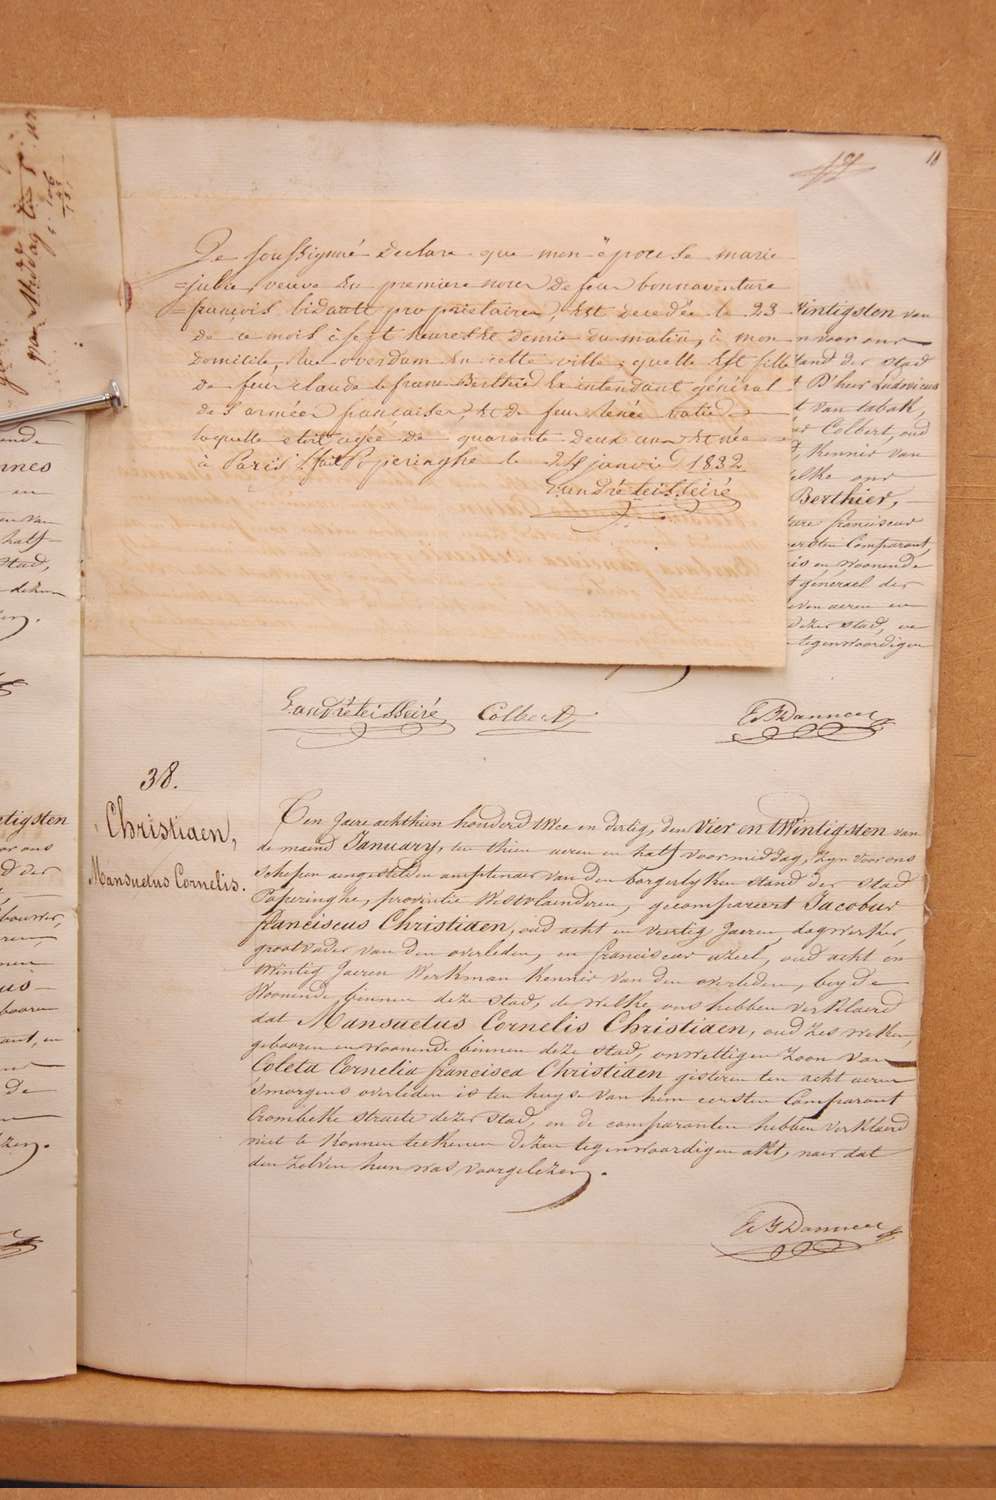 18
Je soussigné declare que mon épouse marie
=julie, veuve en premiere noce de feu bonnaventure
=françois bidault propriétaire, Est decedée le 23
de ce mois à sept heures Et demie du matin, à mon
domicile, Rue overdam En cette ville, quelle Est fille
de feu claude le franc Berthier Ex intendant général
de l'armée française, Et de feue Renée
laquelle etoit agée de quarante deux ans Et née
à Paris. fait Poperinghe le 24 janvier 1832
E. andré teisseire
Vintigsten van
n voor ons
stand der stad
t D'heer Ludovicus
t van tabak,
Colbert, oud
, kennis van
elke ons
Berthier,
ture franciscus
eersten Comparant,
is en woonende
t generael der
seven ueren en
dezer stad, en
tegenwoordigen
E. andré teisseire Colbert
38.
Christiaen,
Mansuetus Cornelis.
Ten Jaere achthien honderd twee en dertig, den vier en twintigsten van
de maend January, ten thien ueren en half voormiddag, zyn voor ons
schepen aengestelden amptenaer van den borgerlyken stand der stad
Poperinghe, provintie Westvlaenderen, gecompareert Jacobus
franciscus Christiaen, oud acht en veertig Jaeren, dagwerker,
grootvader van den overleden, en franciscus oud acht en
twintig Jaeren Werkman kennis van den overleden, beyde
Woonende binnen deze stad, de welke ons hebben verklaerd
dat Mansuetus Cornelis Christiaen, oud zes weken,
gebooren en woonende binnen deze stad, onwettigen zoon van
Coleta Cornelia francisca Christiaen gisteren ten acht ueren
s'morgens overleden is ten huyse van hem eersten Comparant
Crombeke straete dezer stad, en de comparanten hebben verklaerd
niet te konnen teekenen dezen tegenwoordigen akt, naer dat
den zelven hun was voorgelezen.